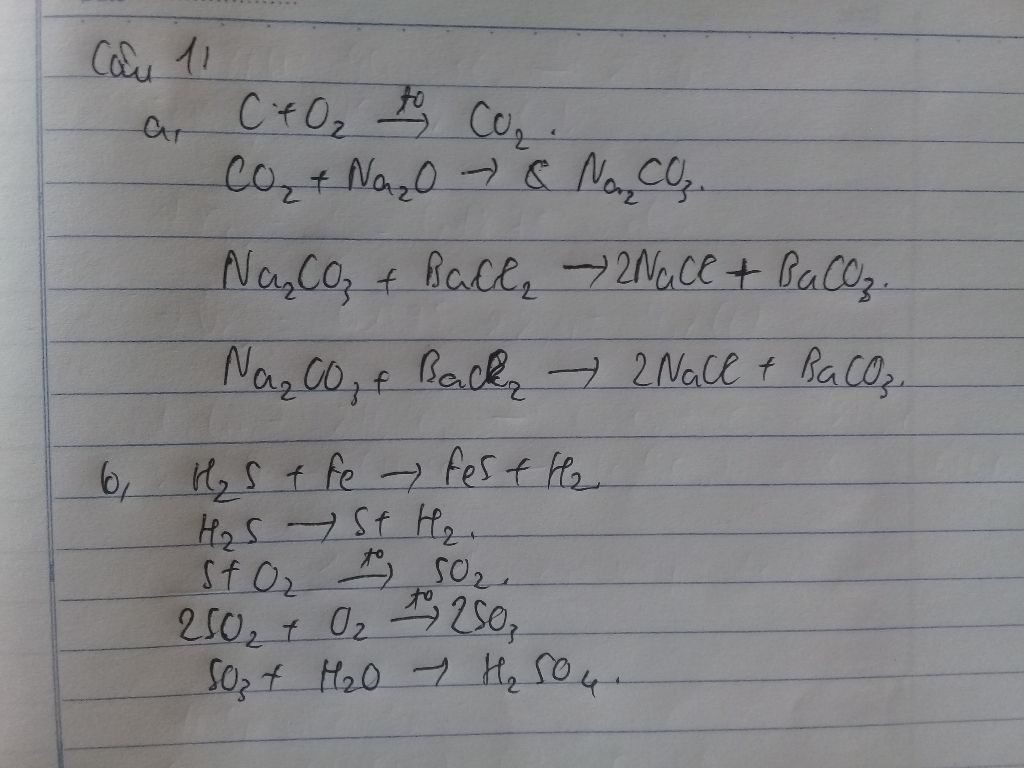 Câu 1)
a, C + O₂ —t⁰→ CO₂.
CO₂ + Na₂O → Na₂CO₃.
Na₂CO₃ + BaCl₂ → 2NaCl + BaCO₃.
Na₂CO₃ + BaCl₂ → 2NaCl + BaCO₃.
b, H₂S + Fe → FeS + H₂
H₂S → S + H₂.
S + O₂ —t⁰→ SO₂.
2SO₂ + O₂ —t⁰→ 2SO₃
SO₃ + H₂O → H₂SO₄.